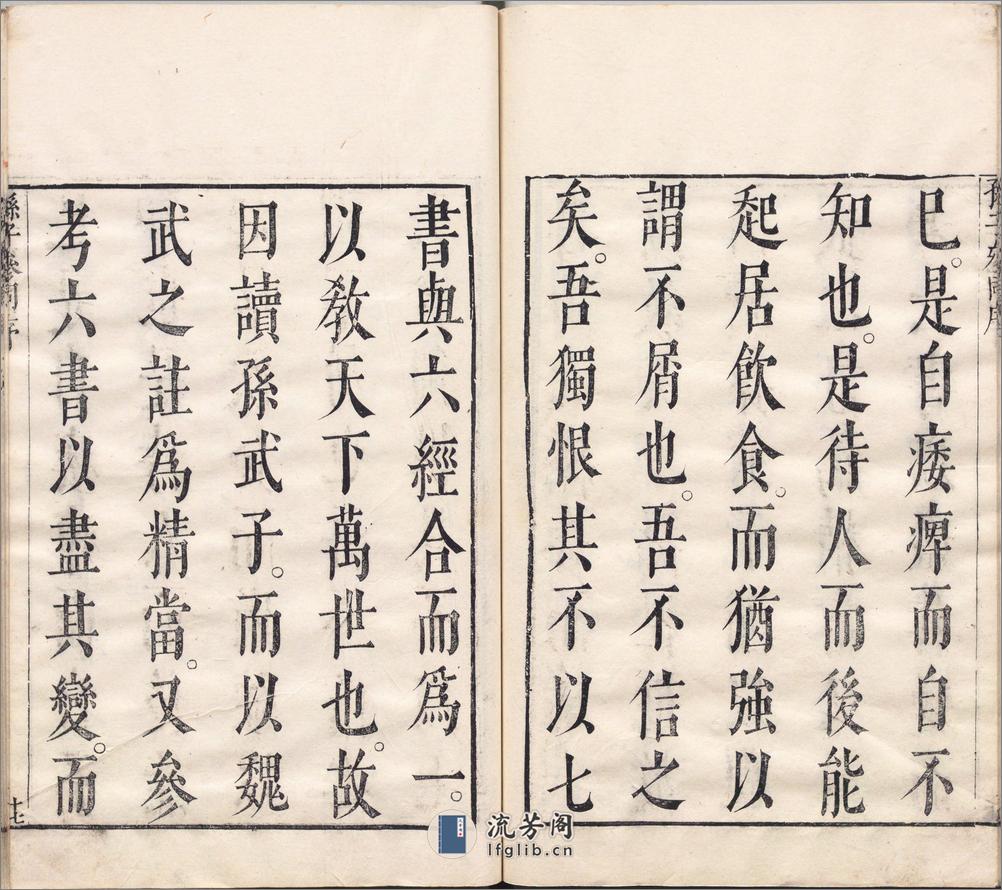 已。是自痿痺而自不
知也。是待人而後能
起居飲食。而猶強以
謂不屑也。吾不信之
矣。吾獨恨其不以七
書與六經合而爲一。
以教天下萬世也。故
因讀孫武子。而以魏
武之註爲精當。又參
考六書以盡其變。而
十七
流芳阁
lfglib.cn